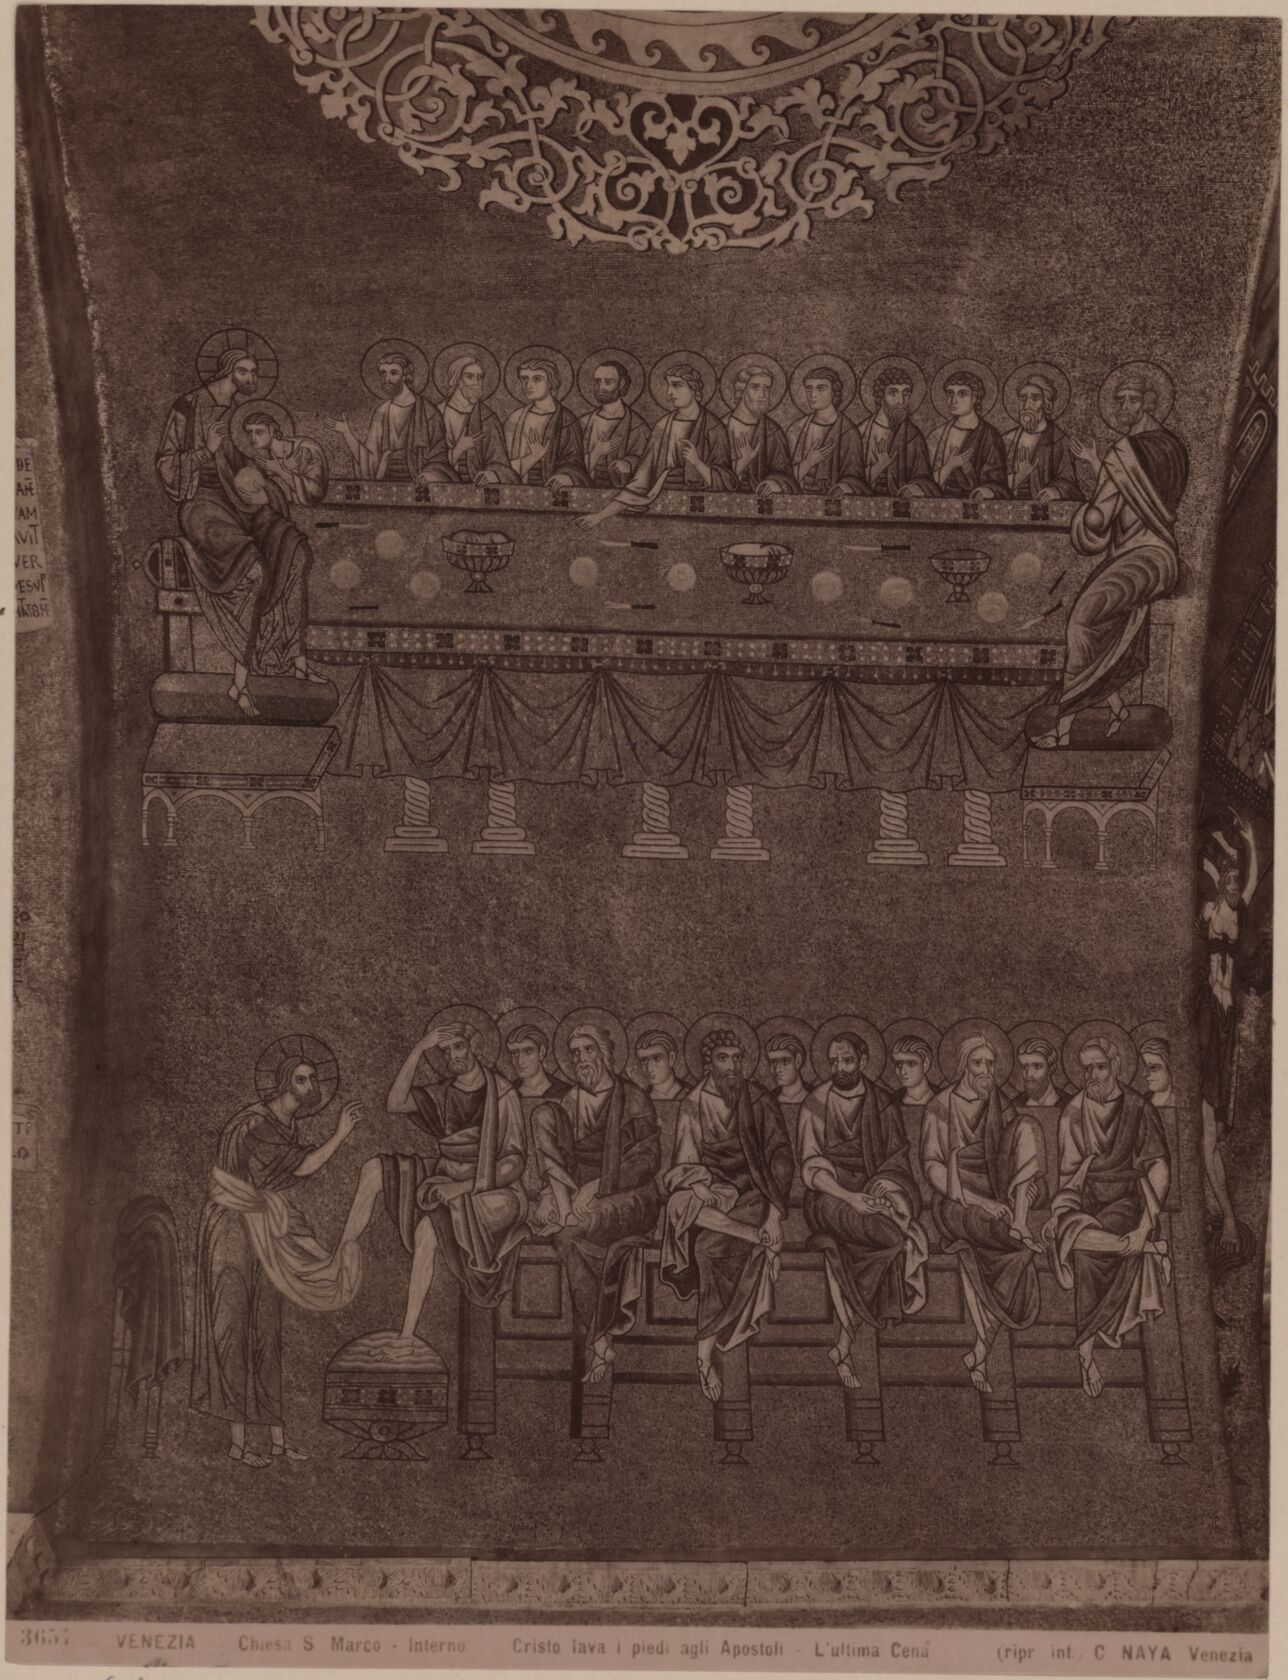 DE
AM
VER
3657 – VENEZIA – Chiesa S Marco - Interno. Cristo lava i piedi agli Apostoli - L'ultima Cena (ripr int. C NAYA Venezia